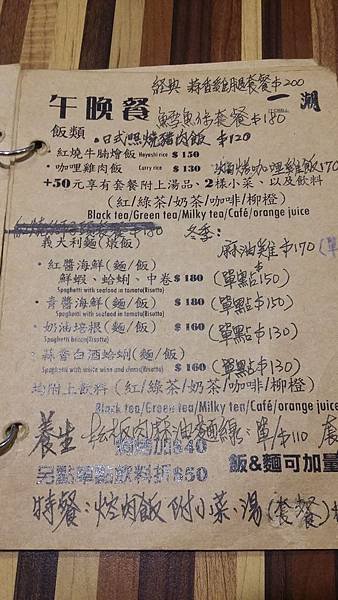 經典 蒜香雞腿套餐$200
午晚餐 鱈魚排套餐$180
一湖
飯類 .日式照燒豬肉飯 $120
·紅燒牛腩燴飯 Hayashi rice $150
·咖哩雞肉飯 Curry rice $130 咖哩雞飯170
+50元享有套餐附上湯品、2樣小菜、以及飲料
(紅/綠茶/奶茶/咖啡/柳橙)
Black tea/Green tea/Milky tea/Café/orange juice
冬季:
義大利麵(燉飯) 麻油雞$170
·紅醬海鮮(麵/飯)
鮮蝦、蛤蜊、中卷 $180 (單點$150)
Spaghetti with seafood in tomato(Risotto)
·青醬海鮮(麵/飯) $180 (單點$150)
Spaghetti with seafood in tomato(Risotto)
·奶油培根(麵/飯) $160 (單點$130)
Spaghetti bacon(Risotto)
·蒜香白酒蛤蜊(麵/飯) $160 (單點$130)
Spaghetti with white wine and clams(Risotto)
均附上飲料(紅/綠茶/奶茶/咖啡/柳橙)
Black tea/Green tea/Milky tea/Café/orange juice
養生 松板肉麻油麵線:單/$110
焗烤加$40 飯&麵可加量
另點單點飲料折$50
特餐:焢肉飯 附小菜、湯(套餐)